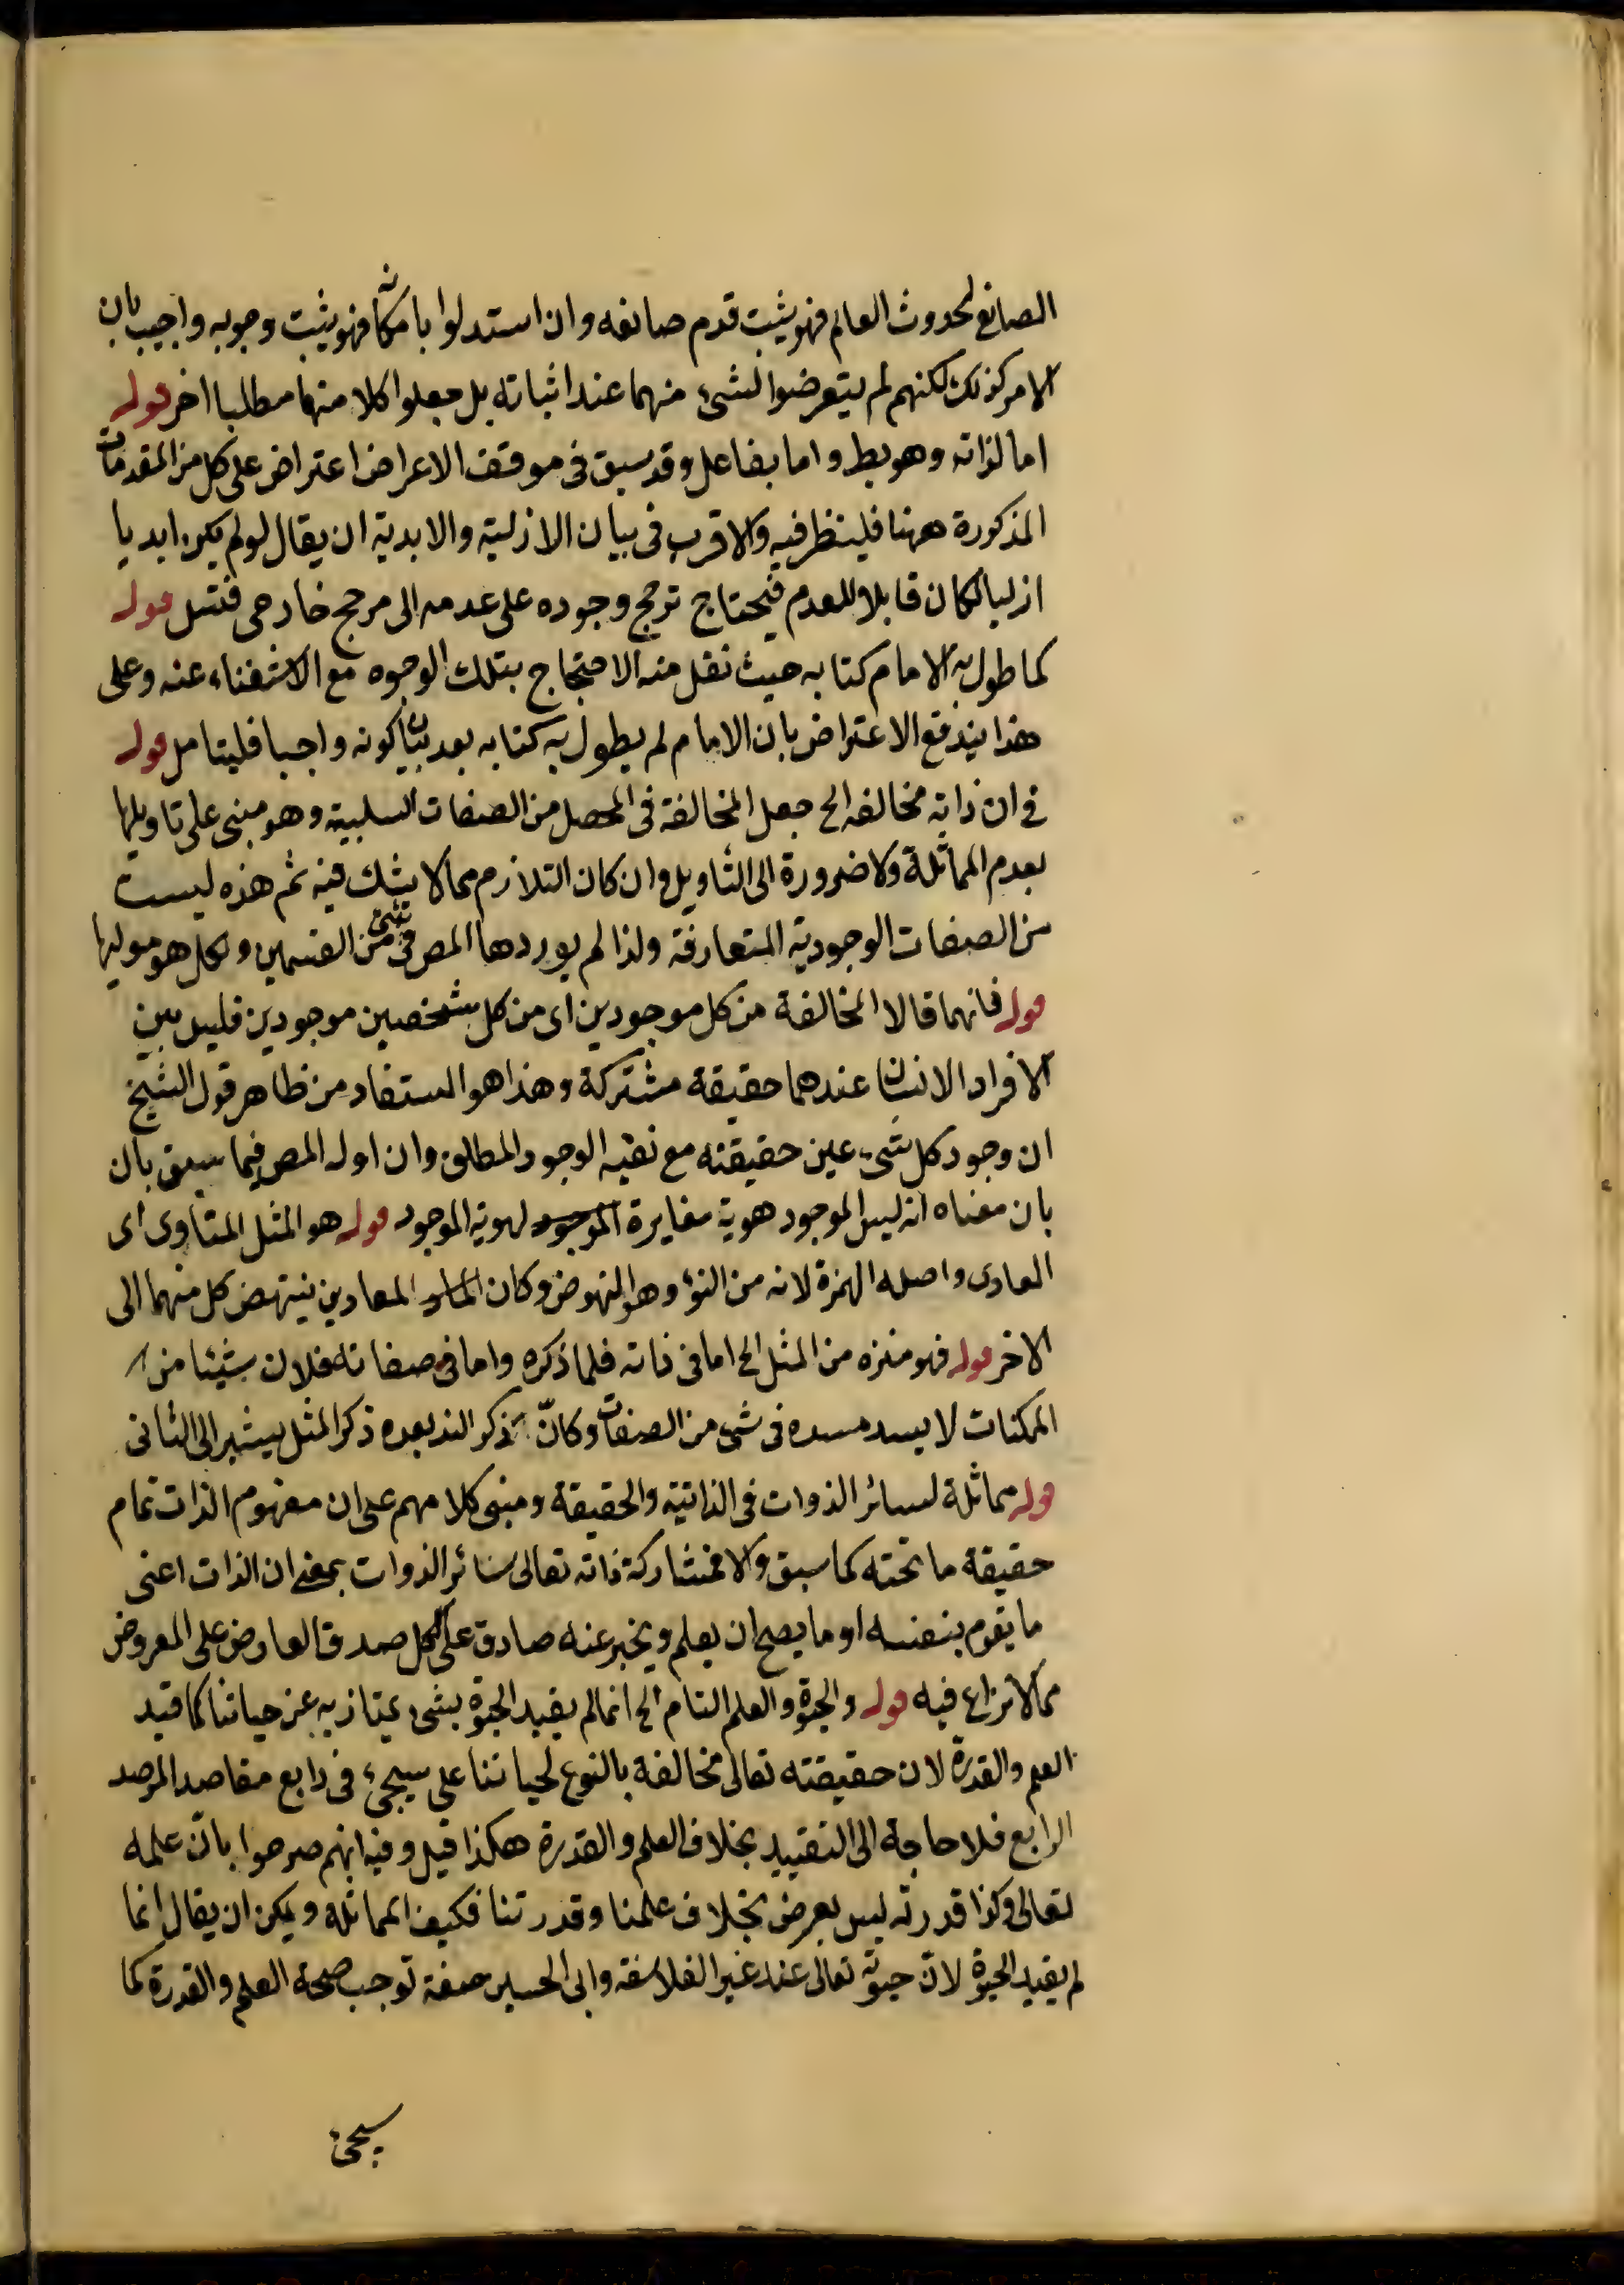 الصانع لحدوث العالم فهو يثبت قدم صانعه وان استدلوا بامكانه فهو يثبت وجوبه واجيب بان
الامر كذلك لكنهم لم يتعرضوا لشئ منهما عند اثباته بل جعلوا كلا منهما مطلبا اخر قوله
اما لذاته وهو بط واما بفاعل وقد سبق فى موقف الاعراض اعتراض على كل من المقدمات
المذكورة ههنا فلينظر فيه والاقرب فى بيان الازلية والابدية ان يقال لو لم يكن ابديا
ازليا لكان قابلا للعدم فيحتاج ترجح وجوده على عدمه الى مرجح خارجى قوله
كما طول به الامام كتابه حيث نقل منه الاحتجاج بتلك الوجوه مع الاستغناء عنه وعلى
هذا يندفع الاعتراض بان الامام لم يطول به كتابه بعد بيان كونه واجبا فليتامل قوله
فى ان ذاته مخالفة الخ جعل المخالفة فى المحصل من الصفات السلبية وهو مبنى على تاويلها
بعدم المماثلة ولا ضرورة الى التاويل وان كان التلازم مما لا يشك فيه ثم هذه ليست
من الصفات الوجودية المتعارفة ولذا لم يوردها المص فى شئ من القسمين ولكل هو موليها
قوله فانهما قالا المخالفة من كل موجودين اى من كل شخصين موجودين فليس بين
الافراد الانسان عندهما حقيقة مشتركة وهذا هو المستفاد من ظاهر قول الشيخ
ان وجود كل شئ عين حقيقته مع نفيه الوجود المطلق وان اوله المص فيما سبق بان
بان معناه انه ليس الموجود هوية مغايرة الموجود لهوية الموجود قوله هو المثل المناوى اى
المعادى واصله الهمزة لانه من النوء وهو النهوض وكان المعادين ينتهض كل منهما الى
الاخر قوله فهو منزه من المثل الخ اما فى ذاته فلما ذكره واما فى صفاته فلان شيئا من
الممكنات لا يسد مسده فى شئ من الصفات وكأن ذكر الند بعده ذكر المثل يشير الى الثانى
قوله مماثلة لسائر الذوات فى الذاتية والحقيقة ومبنى كلامهم على ان مفهوم الذات تمام
حقيقة ما تحته كما سبق والا فمشاركة ذاته تعالى سائر الذوات بمعنى ان الذات اعنى
ما يقوم بنفسه او ما يصح ان يعلم ويخبر عنه صادق على الكل صدق العارض على المعروض
مما لا نزاع فيه قوله والحيوة والعلم التام الخ انما لم يقيد الحيوة بشئ يمتاز به عن حياتنا كما قيد
العلم والقدرة لان حقيقته تعالى مخالفة بالنوع لحياتنا على سيجئ فى رابع مقاصد المرصد
الرابع فلا حاجة الى التقييد بخلاف العلم والقدرة هكذا قيل وفيه انهم صرحوا بان علمه
تعالى وكذا قدرته ليس بعرض بخلاف علمنا وقدرتنا فكيف المماثلة ويمكن ان يقال انما
لم يقيد الحيوة لان حيوته تعالى عند غير الفلاسفة وابى الحسين صفة توجب صحة العلم والقدرة كما
سيجئ